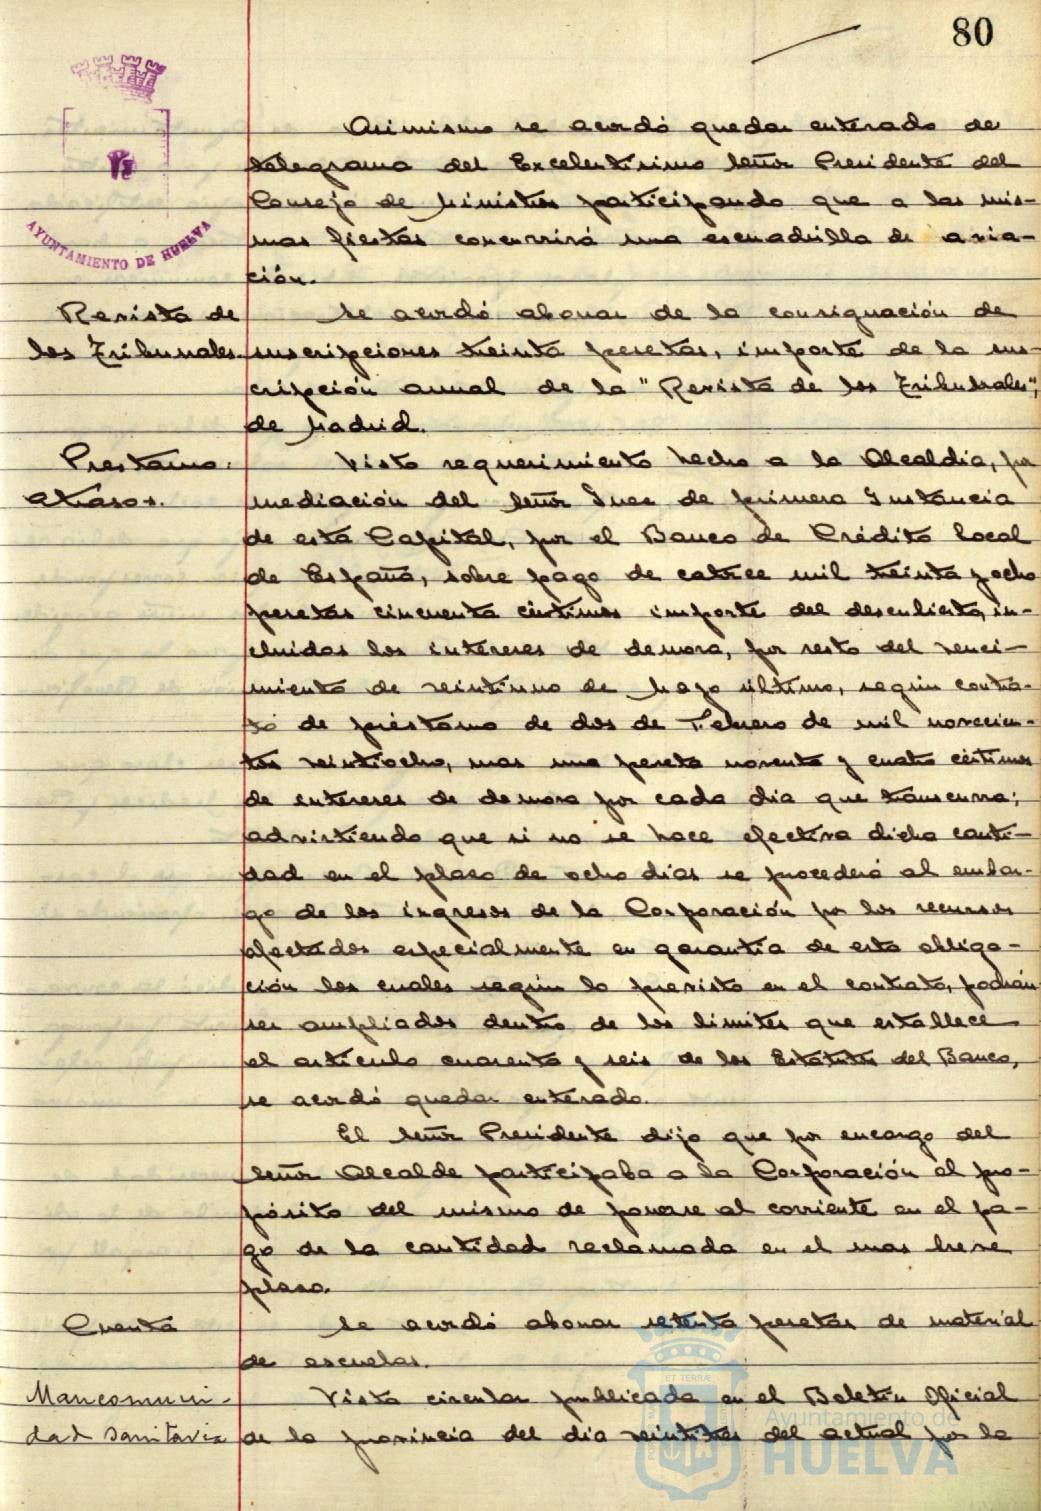 80
AYUNTAMIENTO DE HUELVA
Asimismo se acordó quedar enterado de
telegrama del Excelentísimo Señor Presidente del
Consejo de Ministros participando que a las mis-
mas fiestas concurrirá una escuadrilla de avia-
ción.
Revista de
los Tribunales.
Se acordó abonar de la consignación de
suscripciones treinta pesetas, importe de la sus-
cripción anual de la "Revista de los Tribunales",
de Madrid.
Prestamo.
atrasos.
Visto requerimiento hecho a la Alcaldía, por
mediación del Señor Juez de primera Instancia
de esta Capital, por el Banco de Crédito Local
de España, sobre pago de catorce mil treinta y ocho
pesetas cincuenta céntimos importe del descubierto, in-
cluidos los intereses de demora, por resto del venci-
miento de veintiuno de Mayo último, según contra-
to de préstamo de dos de Febrero de mil novecien-
tos veintiocho, mas una peseta noventa y cuatro céntimos
de intereses de demora por cada dia que transcurra;
advirtiendo que si no se hace efectiva dicha canti-
dad en el plazo de ocho dias se procederá al embar-
go de los ingresos de la Corporación por los recursos
afectados especialmente en garantía de esta obliga-
ción los cuales según lo previsto en el contrato, podrán
ser ampliados dentro de los límites que establece
el artículo cuarenta y seis de los Estatutos del Banco,
se acordó quedar enterado.
El Señor Presidente dijo que por encargo del
Señor Alcalde participaba a la Corporación el pro-
pósito del mismo de ponerse al corriente en el pa-
go de la cantidad reclamada en el mas breve
plazo.
Cuenta
Se acordó abonar setenta pesetas de material
de escuelas.
Mancomuni-
dad sanitaria
Vista circular publicada en el Boletín Oficial
de la provincia del dia veintitres del actual por la
Ayuntamiento de
HUELVA